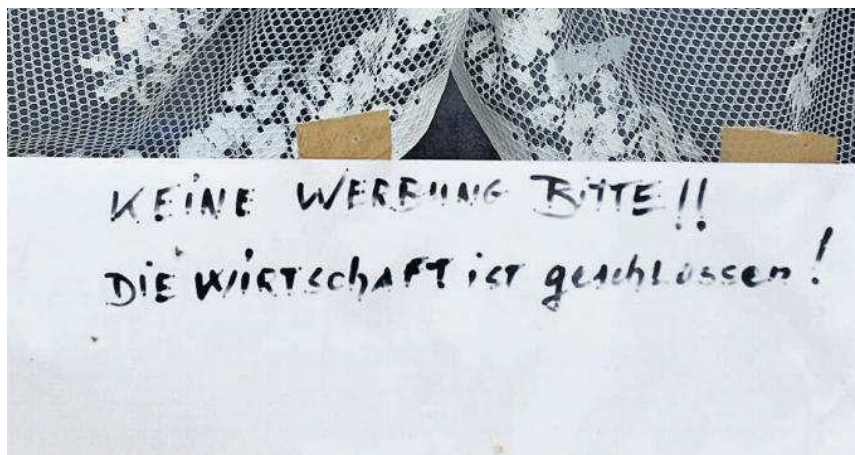 KEINE WERBUNG BITTE!!
DIE WIRTSchAFT iST geschLossen!